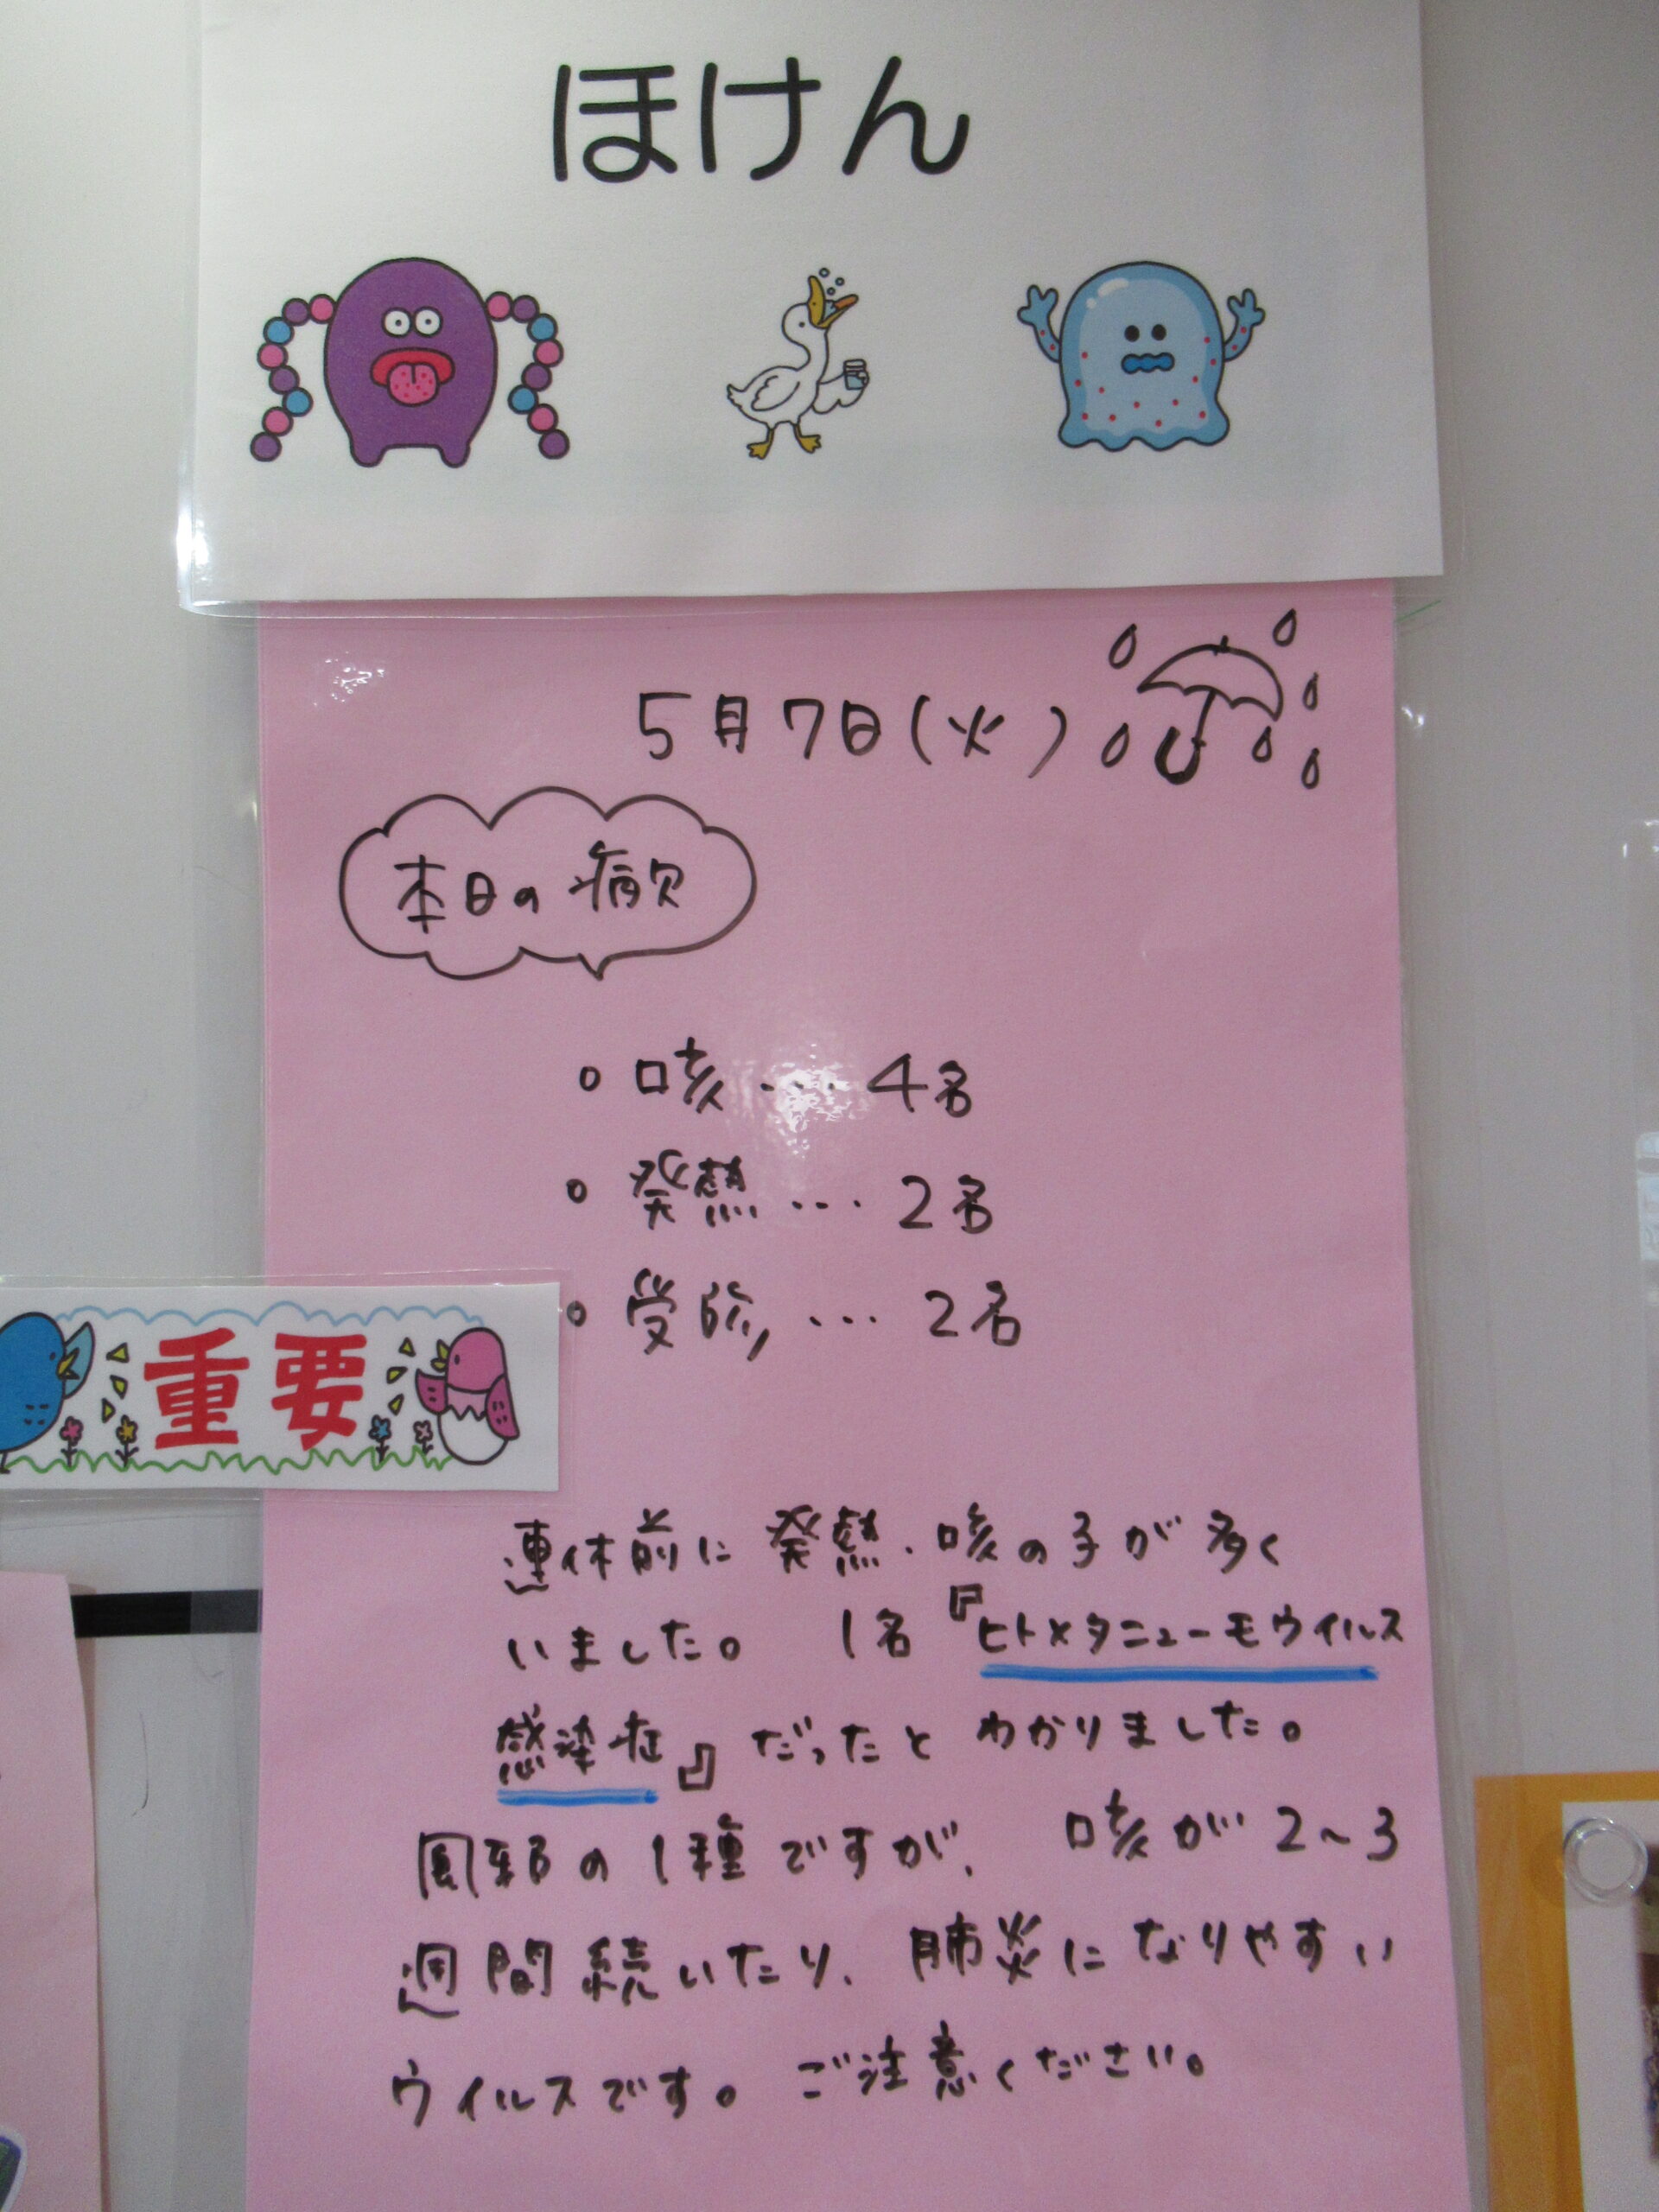 ほけん
5月7日(火)
本日の病欠
○ 咳 … 4名
○ 発熱 … 2名
○ 受診 … 2名
重要
連休前に発熱、咳の子が多く
いました。 1名『ヒトメタニューモウイルス
感染症』だったとわかりました。
風邪の1種ですが、咳が2~3
週間続いたり、肺炎になりやすい
ウイルスです。ご注意ください。